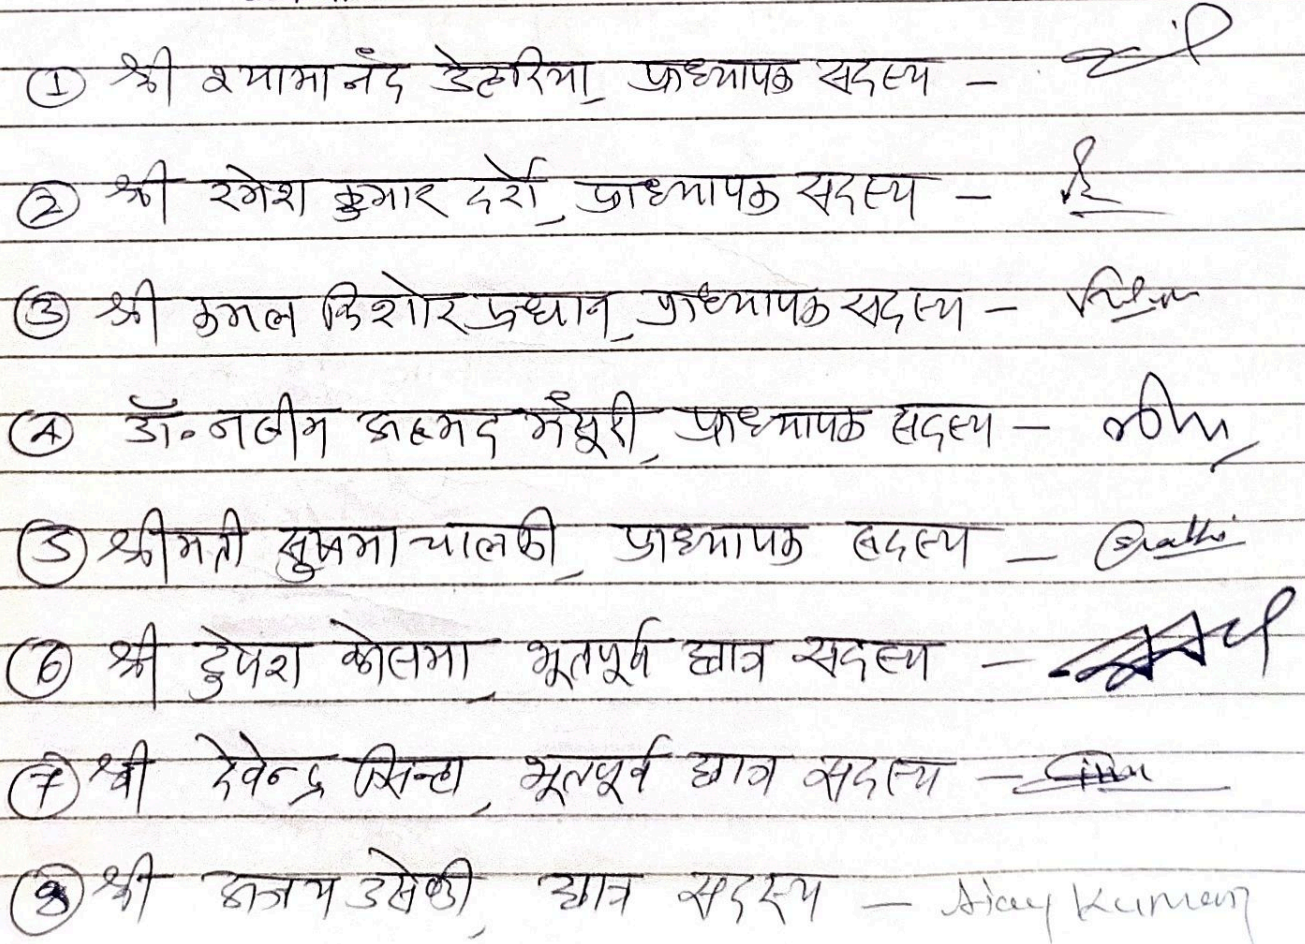 ① श्री श्यामानंद डेहरिया, प्राध्यापक सदस्य –
② श्री रमेश कुमार दर्रो, प्राध्यापक सदस्य –
③ श्री कमल किशोर प्रधान, प्राध्यापक सदस्य –
④ डॉ. नसीम अहमद मंसूरी, प्राध्यापक सदस्य –
⑤ श्रीमती सुषमा चालकी, प्राध्यापक सदस्य –
⑥ श्री डुपेश कोसमा, भूतपूर्व छात्र सदस्य –
⑦ श्री देवेन्द्र सिन्हा, भूतपूर्व छात्र सदस्य –
⑧ श्री अजय उसेण्डी, छात्र सदस्य – Ajay Kumar